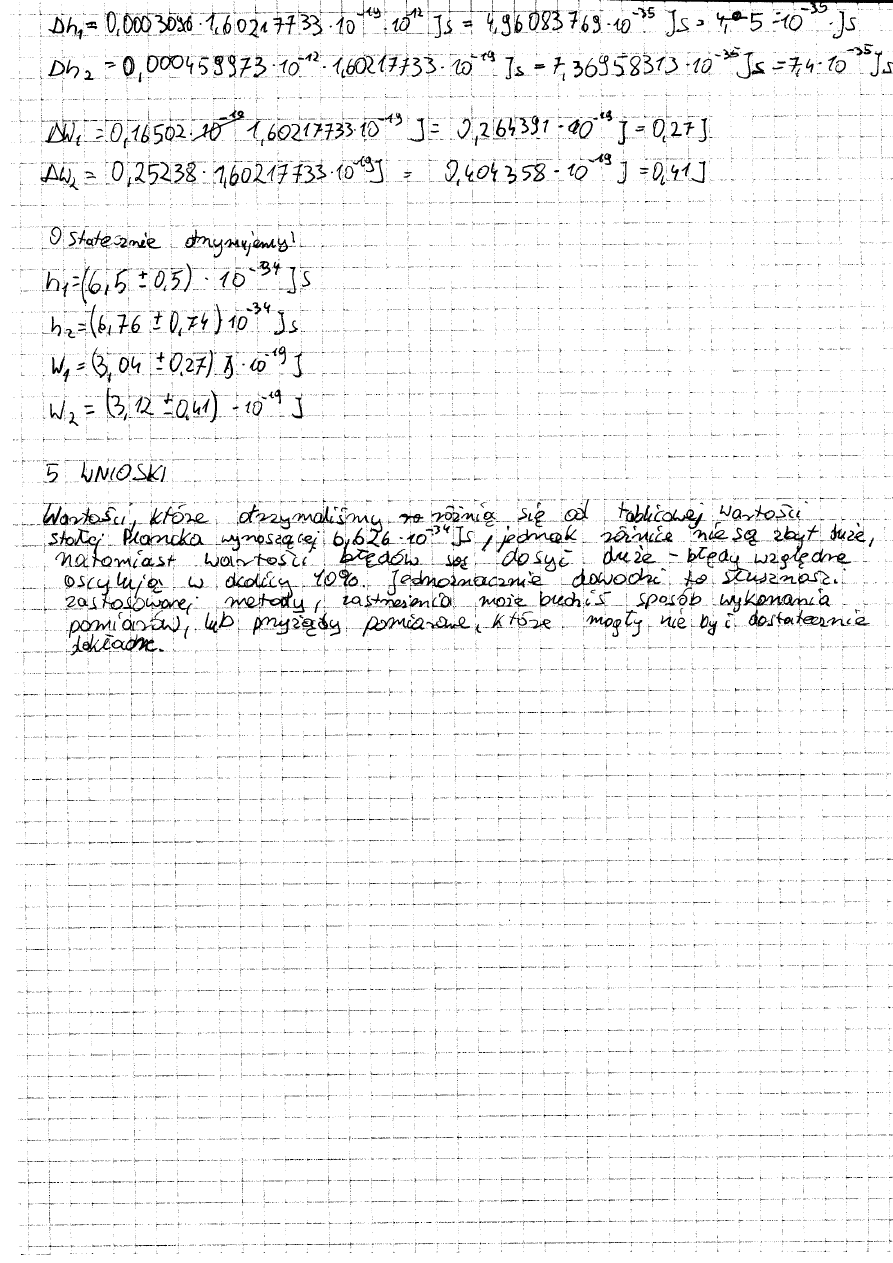 Δh₁ = 0,0003096 · 1,60217733 · 10⁻¹⁹ · 10⁻¹² Js = 4,96083769 · 10⁻³⁵ Js = 5 · 10⁻³⁵ · Js
Δh₂ = 0,000459973 · 10⁻¹² · 1,60217733 · 10⁻¹⁹ Js = 7,36958313 · 10⁻³⁵ Js = 7,4 · 10⁻³⁵ Js
ΔW₁ = 0,16502 · 1,60217733 · 10⁻¹⁹ J = 0,264391 · 10⁻¹⁹ J = 0,27 J
ΔW₂ = 0,25238 · 1,60217733 · 10⁻¹⁹ J = 0,404358 · 10⁻¹⁹ J = 0,41 J
Ostatecznie otrzymujemy:
h₁ = (6,5 ± 0,5) · 10⁻³⁴ Js
h₂ = (6,76 ± 0,74) 10⁻³⁴ Js
W₁ = (3,04 ± 0,27) · 10⁻¹⁹ J
W₂ = (3,12 ± 0,41) · 10⁻¹⁹ J
5 WNIOSKI
Wartości, które otrzymaliśmy różnią się od tablicowej wartości
stałej Plancka wynoszącej 6,626 · 10⁻³⁴ Js, jednak różnice nie są zbyt duże,
natomiast wartości błędów są dosyć duże - błędy względne
oscylują w okolicy 10%. Jednoznacznie dowodzi to słuszność
zastosowanej metody, zastrzeżenia może budzić sposób wykonania
pomiarów, lub przyrządy pomiarowe, które mogły nie być dostatecznie
dokładne.